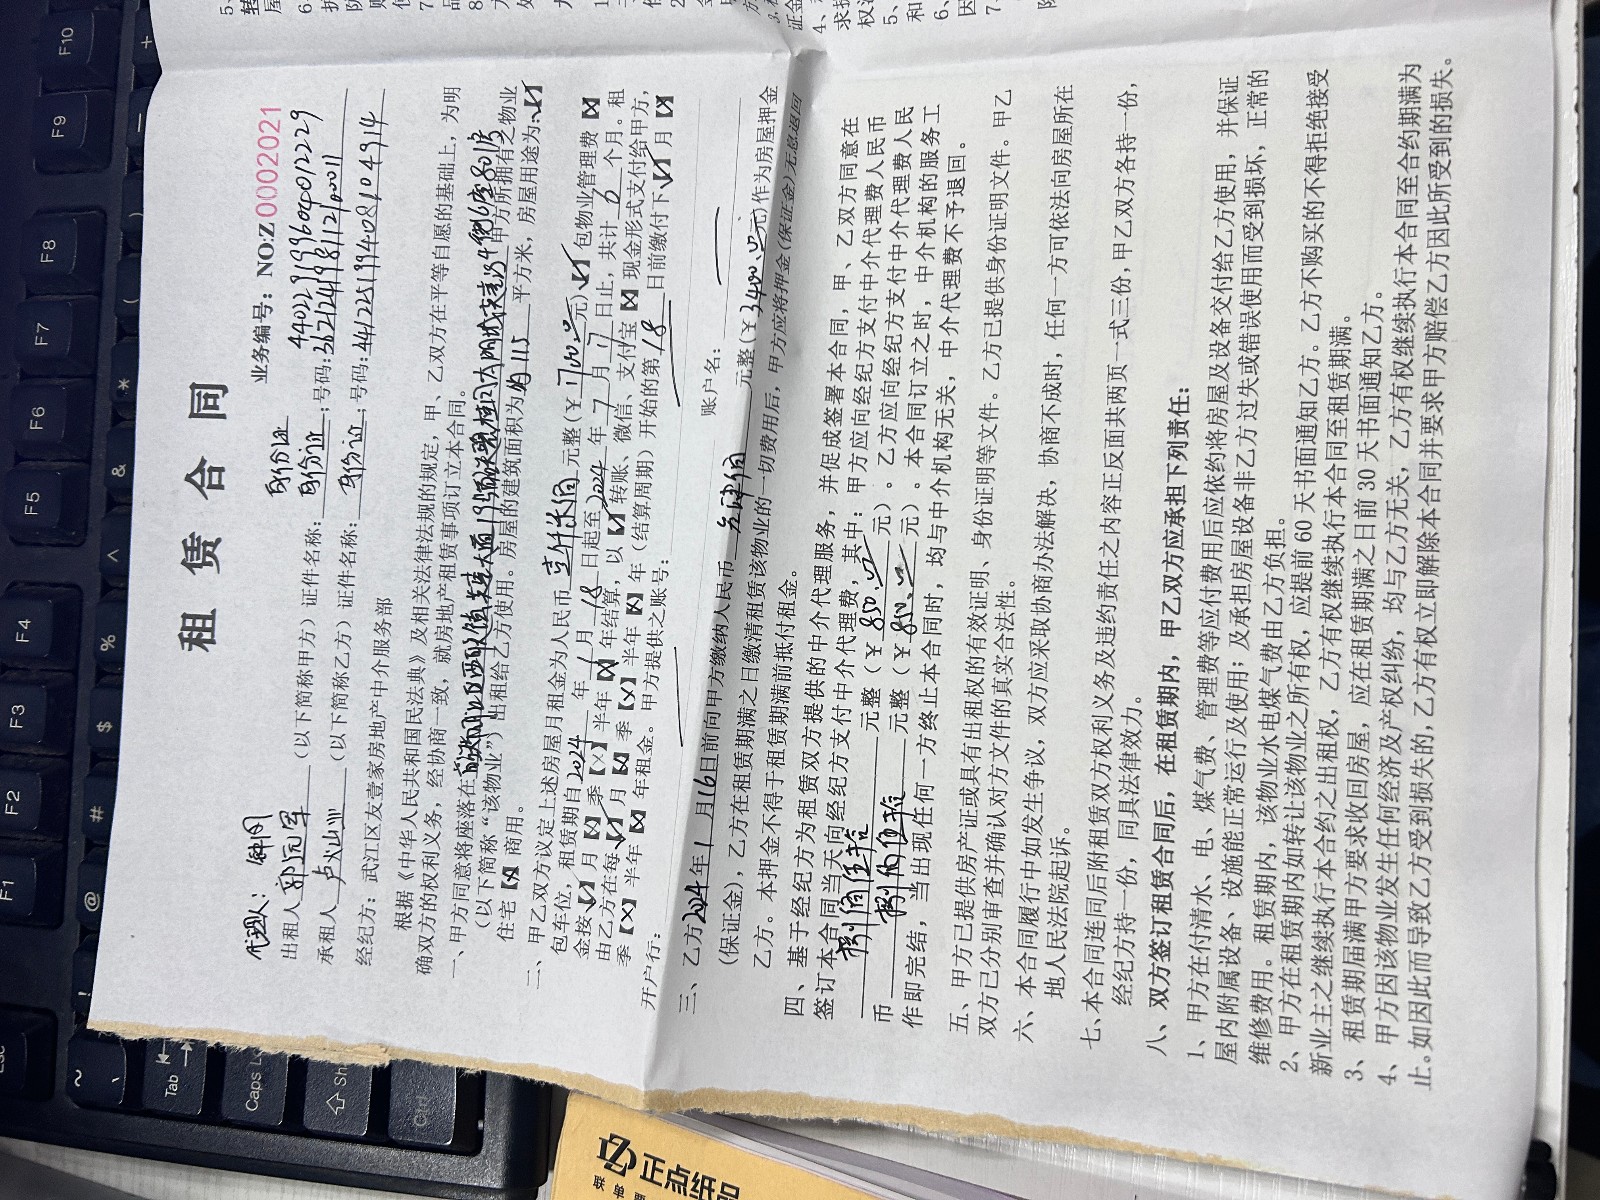 租赁合同
业务编号：NO:Z0002021
代理人：
身份证 4402291996090012229
出租人 （以下简称甲方）证件名称：身份证；号码：
承租人 （以下简称乙方）证件名称：身份证；号码：441225199408104914
经纪方：武江区友壹家房地产中介服务部
根据《中华人民共和国民法典》及相关法律法规的规定，甲、乙双方在平等自愿的基础上，为明
确双方的权利义务，经协商一致，就房地产租赁事项订立本合同。
一、甲方同意将座落在 甲方所拥有之物业
（以下简称“该物业”）出租给乙方使用。房屋的建筑面积为约115平方米，房屋用途为：【√】
住宅【X】商用。
二、甲乙双方议定上述房屋月租金为人民币壹仟柒佰元整（￥1700.00元）【√】包物业管理费【X】
包车位，租赁期自2024年1月18日起至2024年7月 日止，共计6个月。租
金按【√】月【X】季【X】半年【X】年结算，以【√】转账、微信、支付宝【X】现金形式支付给甲方，
由乙方在每【√】月【X】季【X】半年【X】年（结算周期）开始的第18日前缴付下【√】月【X】
季【X】半年【X】年租金。甲方提供之账号：
开户行： 账户名：
三、乙方2024年1月16日前向甲方缴纳人民币 元整（￥3400.00元）作为房屋押金
（保证金），乙方在租赁期满之日缴清租赁该物业的一切费用后，甲方应将押金（保证金）无息退回
乙方。本押金不得于租赁期满前抵付租金。
四、基于经纪方为租赁双方提供的中介代理服务，并促成签署本合同，甲、乙双方同意在
签订本合同当天向经纪方支付中介代理费，其中：甲方应向经纪方支付中介代理费人民币
捌佰伍拾元整（￥850.00元）。乙方应向经纪方支付中介代理费人民
币捌佰伍拾元整（￥850.00元）。本合同订立之时，中介机构的服务工
作即完结，当出现任何一方终止本合同时，均与中介机构无关，中介代理费不予退回。
五、甲方已提供房产证或具有出租权的有效证明、身份证明等文件。乙方已提供身份证明文件。甲乙
双方已分别审查并确认对方文件的真实合法性。
六、本合同履行中如发生争议，双方应采取协商办法解决，协商不成时，任何一方可依法向房屋所在
地人民法院起诉。
七、本合同连同后附租赁双方权利义务及违约责任之内容正反面共两页一式三份，甲乙双方各持一份，
经纪方持一份，同具法律效力。
八、双方签订租赁合同后，在租赁期内，甲乙双方应承担下列责任：
1、甲方在付清水、电、煤气费、管理费等应付费用后应依约将房屋及设备交付给乙方使用，并保证
屋内附属设备、设施能正常运行及使用；及承担房屋设备非乙方过失或错误使用而受到损坏，正常的
维修费用。租赁期内，该物业水电煤气费由乙方负担。
2、甲方在租赁期内如转让该物业之所有权，应提前 60 天书面通知乙方。乙方不购买的不得拒绝接受
新业主之继续执行本合约之出租权，乙方有权继续执行本合同至租赁期满。
3、租赁期届满甲方要求收回房屋，应在租赁期满之日前 30 天书面通知乙方。
4、甲方因该物业发生任何经济及产权纠纷，均与乙方无关，乙方有权继续执行本合同至合约期满为
止。如因此而导致乙方受到损失的，乙方有权立即解除本合同并要求甲方赔偿乙方因此所受到的损失。
正点纸品
F1 F2 F3 F4 F5 F6 F7 F8 F9 F10
Tab
Caps Lo
Ctrl